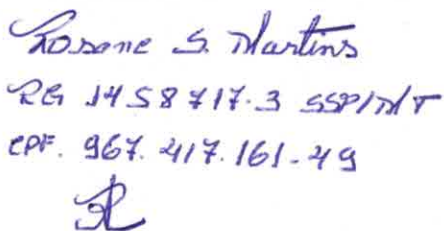 Rosane S. Martins
RG 1458717-3 SSP/MT
CPF. 967.417.161-49